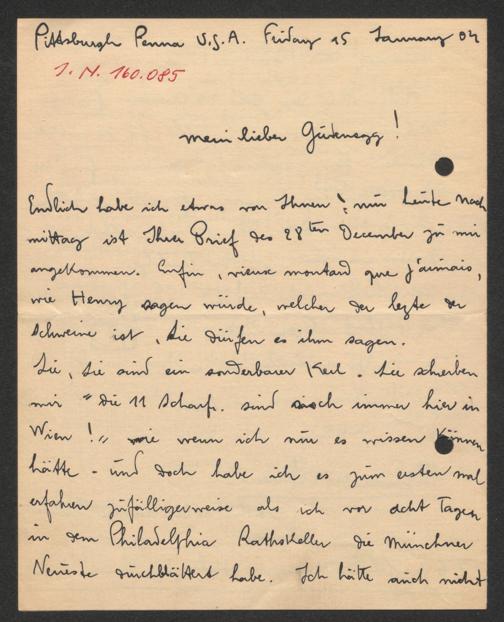 Pittsburgh Penna U.S.A. Friday 15 January 04
J. N. 160.085
mein lieber !
Endlich habe ich etwas von Ihnen! nur heute nach
mittag ist Ihrer Brief des 28ten December zu mir
angekommen. Enfin, vieux que j'aimais,
wie Henry sagen würde, welcher der lezte der
Schweine ist, Sie dürfen es ihm sagen.
Sie, Sie sind ein sonderbarer Kerl. Sie schreiben
mir "die 11 Scharf. sind noch immer hier in
Wien!" wie wenn ich nur es wissen können
hätte - und doch habe ich es zum ersten mal
erfahren zufälligerweise als ich vor acht Tagen
in dem Philadelphia Rathskeller die Münchner
Neueste durchblättert habe. Ich hätte auch nicht